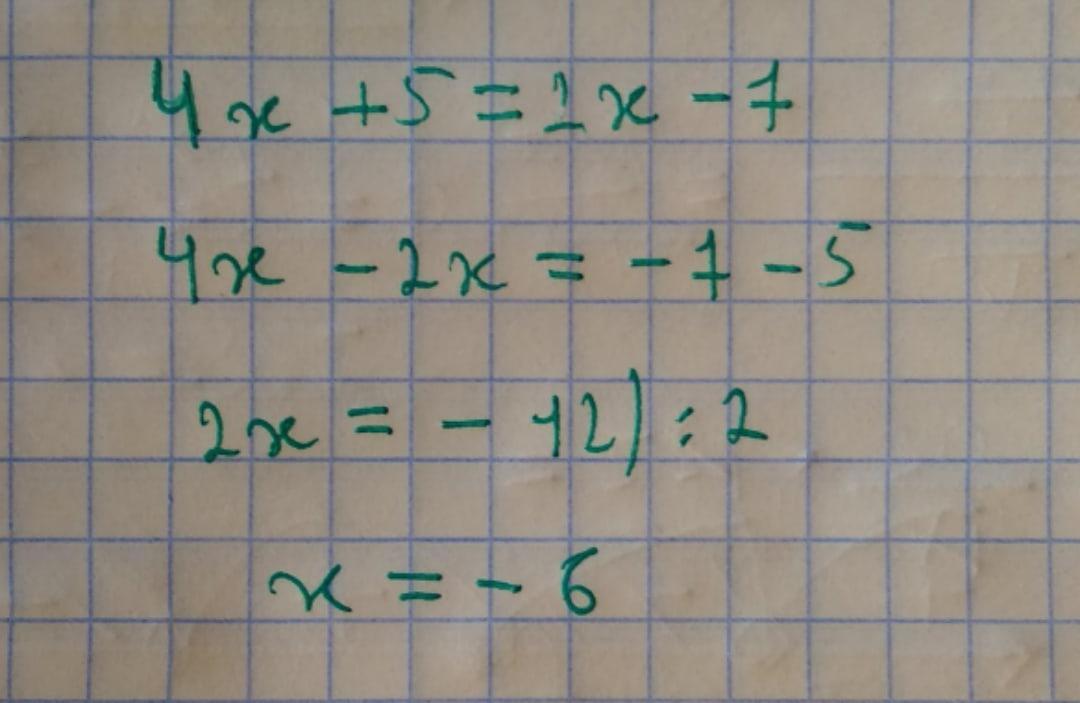 4x + 5 = 2x - 7
4x - 2x = - 7 - 5
2x = - 12) : 2
x = - 6